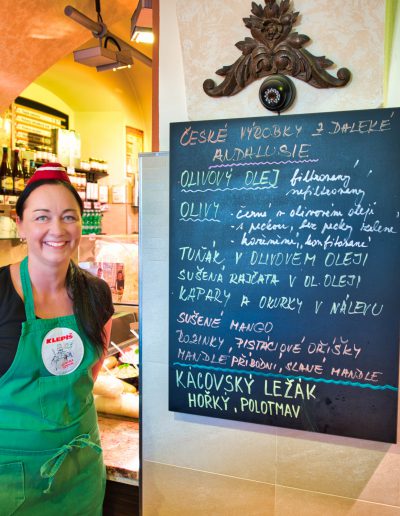 ČESKÉ VÝROBKY Z DALEKÉ
ANDALUSIE
OLIVOVÝ OLEJ filtrovaný
nefiltrovaný
OLIVY - černé v olivovém oleji
s peckou, bez pecky, zelené
kořeněné,
TUŇÁK V OLIVOVEM OLEJI
SUŠENÁ RAJČATA V OL. OLEJI
KAPARY A OKURKY V NÁLEVU
SUŠENÉ MANGO
ROZINKY, PISTACIOVÉ OŘÍŠKY
MANDLE PŘÍRODNÍ, SLANÉ MANDLE
KÁCOVSKÝ LEŽÁK
HOŘKÝ, POLOTMAV
KLEPIS